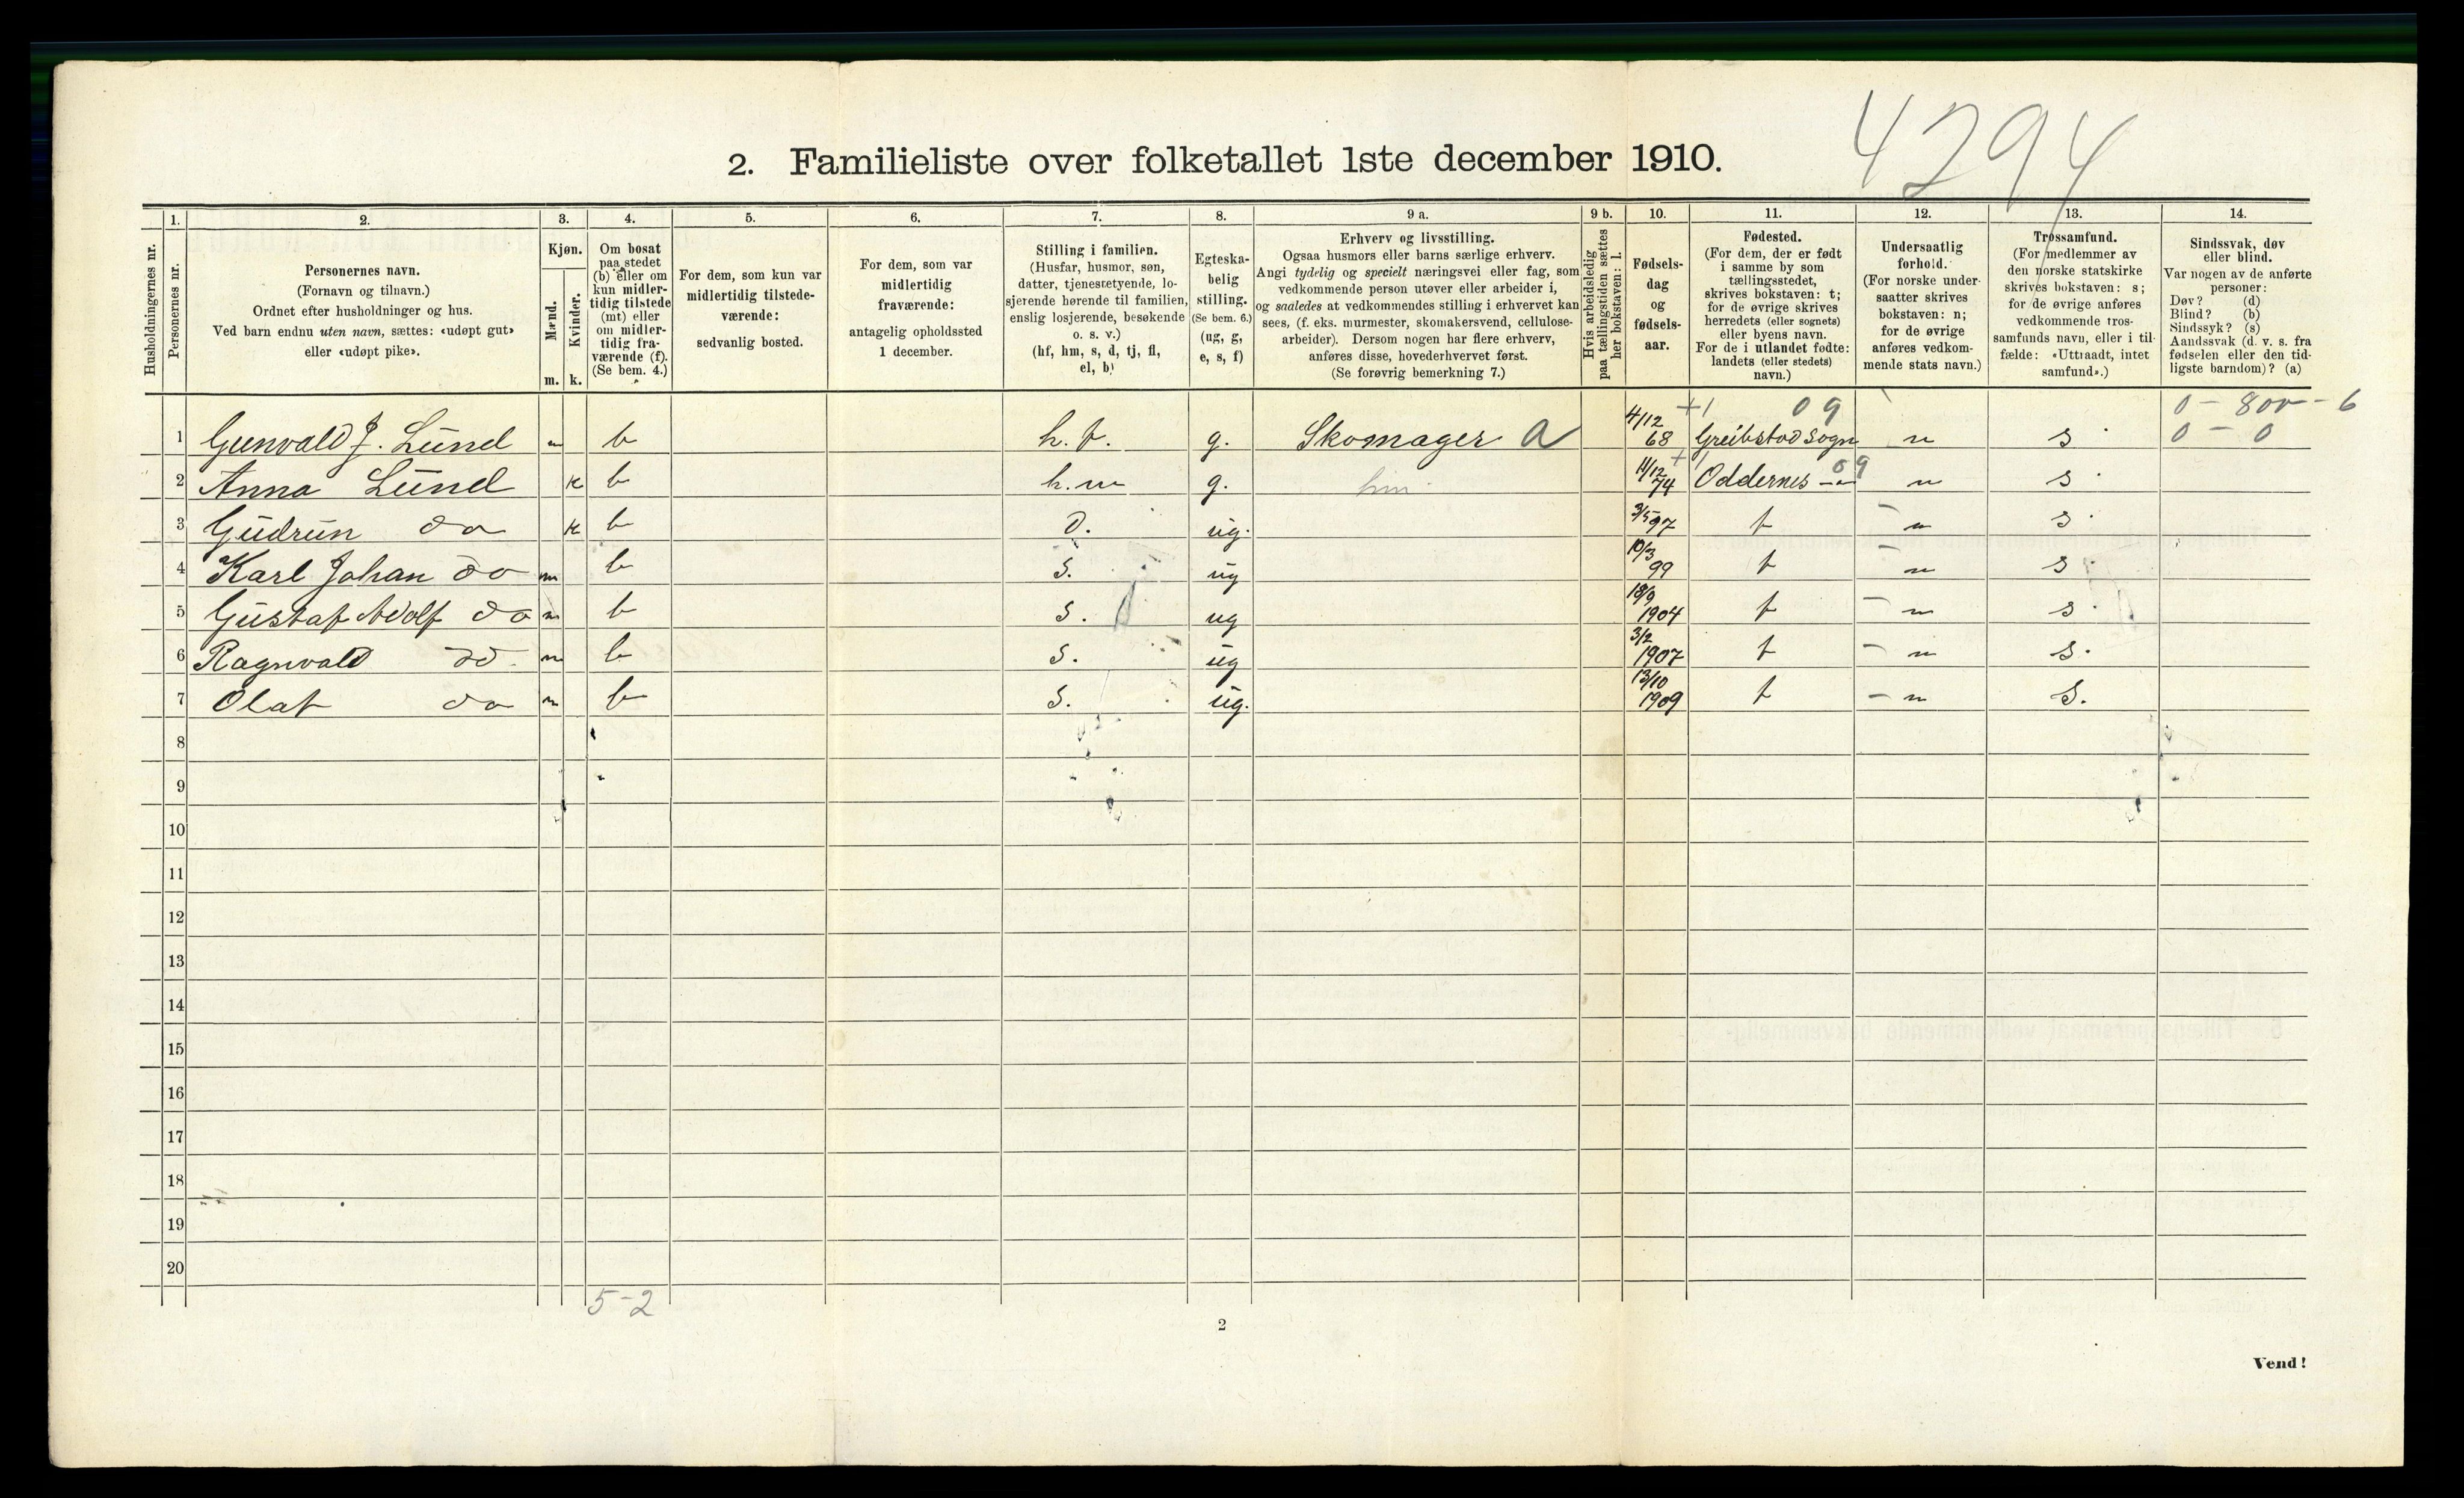 4294
2. Familieliste over folketallet 1ste december 1910.
1. 2. 3. 4. 5. 6. 7. 8. 9 a. 9 b. 10. 11. 12. 13. 14.
Husholdningernes nr.
Personernes nr.
Personernes navn.
(Fornavn og tilnavn.)
Ordnet efter husholdninger og hus.
Ved barn endnu uten navn, sættes: «udøpt gut»
eller «udøpt pike».
Kjøn.
Mænd.
Kvinder.
m. k.
Om bosat
paa stedet
(b) eller om
kun midler-
tidig tilstede
(mt) eller
om midler-
tidig fra-
værende (f).
(Se bem. 4.)
For dem, som kun var
midlertidig tilstede-
værende:
sedvanlig bosted.
For dem, som var
midlertidig
fraværende:
antagelig opholdssted
1 december.
Stilling i familien.
(Husfar, husmor, søn,
datter, tjenestetyende, lo-
sjerende hørende til familien,
enslig losjerende, besøkende
o. s. v.)
(hf, hm, s, d, tj, fl,
el, b)
Egteska-
belig
stilling.
(Se bem. 6.)
(ug, g,
e, s, f)
Erhverv og livsstilling.
Ogsaa husmors eller barns særlige erhverv.
Angi tydelig og specielt næringsvei eller fag, som
vedkommende person utøver eller arbeider i,
og saaledes at vedkommendes stilling i erhvervet kan
sees, (f. eks. murmester, skomakersvend, cellulose-
arbeider). Dersom nogen har flere erhverv,
anføres disse, hovederhvervet først.
(Se forøvrig bemerkning 7.)
Hvis arbeidsledig
paa tællingstiden sættes
her bokstaven: l.
Fødsels-
dag
og
fødsels-
aar.
Fødested.
(For dem, der er født
i samme by som
tællingsstedet,
skrives bokstaven: t;
for de øvrige skrives
herredets (eller sognets)
eller byens navn.
For de i utlandet fødte:
landets (eller stedets)
navn.)
Undersaatlig
forhold.
(For norske under-
saatter skrives
bokstaven: n;
for de øvrige
anføres vedkom-
mende stats navn.)
Trossamfund.
(For medlemmer av
den norske statskirke
skrives bokstaven: s;
for de øvrige anføres
vedkommende tros-
samfunds navn, eller i til-
fælde: «Uttraadt, intet
samfund».)
Sindssvak, døv
eller blind.
Var nogen av de anførte
personer:
Døv? (d)
Blind? (b)
Sindssyk? (s)
Aandssvak (d. v. s. fra
fødselen eller den tid-
ligste barndom)? (a)
+1 09 0 - 800 - 6
1 Gunvald J. Lund m b h. f. g. Skomager a 4/12 68 Greibstad Sogn n s 0 - 0
2 Anna Lund k b h. m g. hm 11/12 74 +1 Oddernes -"- 09 n s
3 Gudrun do k b d. ug. 3/5 97 t n s
4 Karl Johan do m b s. ug 10/3 99 t n s
5 Gustaf Adolf do m b s. ug 18/9 1904 t n s
6 Ragnvald do. m b s. ug 3/2 1907 t n s.
7 Olaf do m b s. ug. 13/10 1909 t n s.
8
9
10
11
12
13
14
15
16
17
18
19
20
5-2
2
Vend!